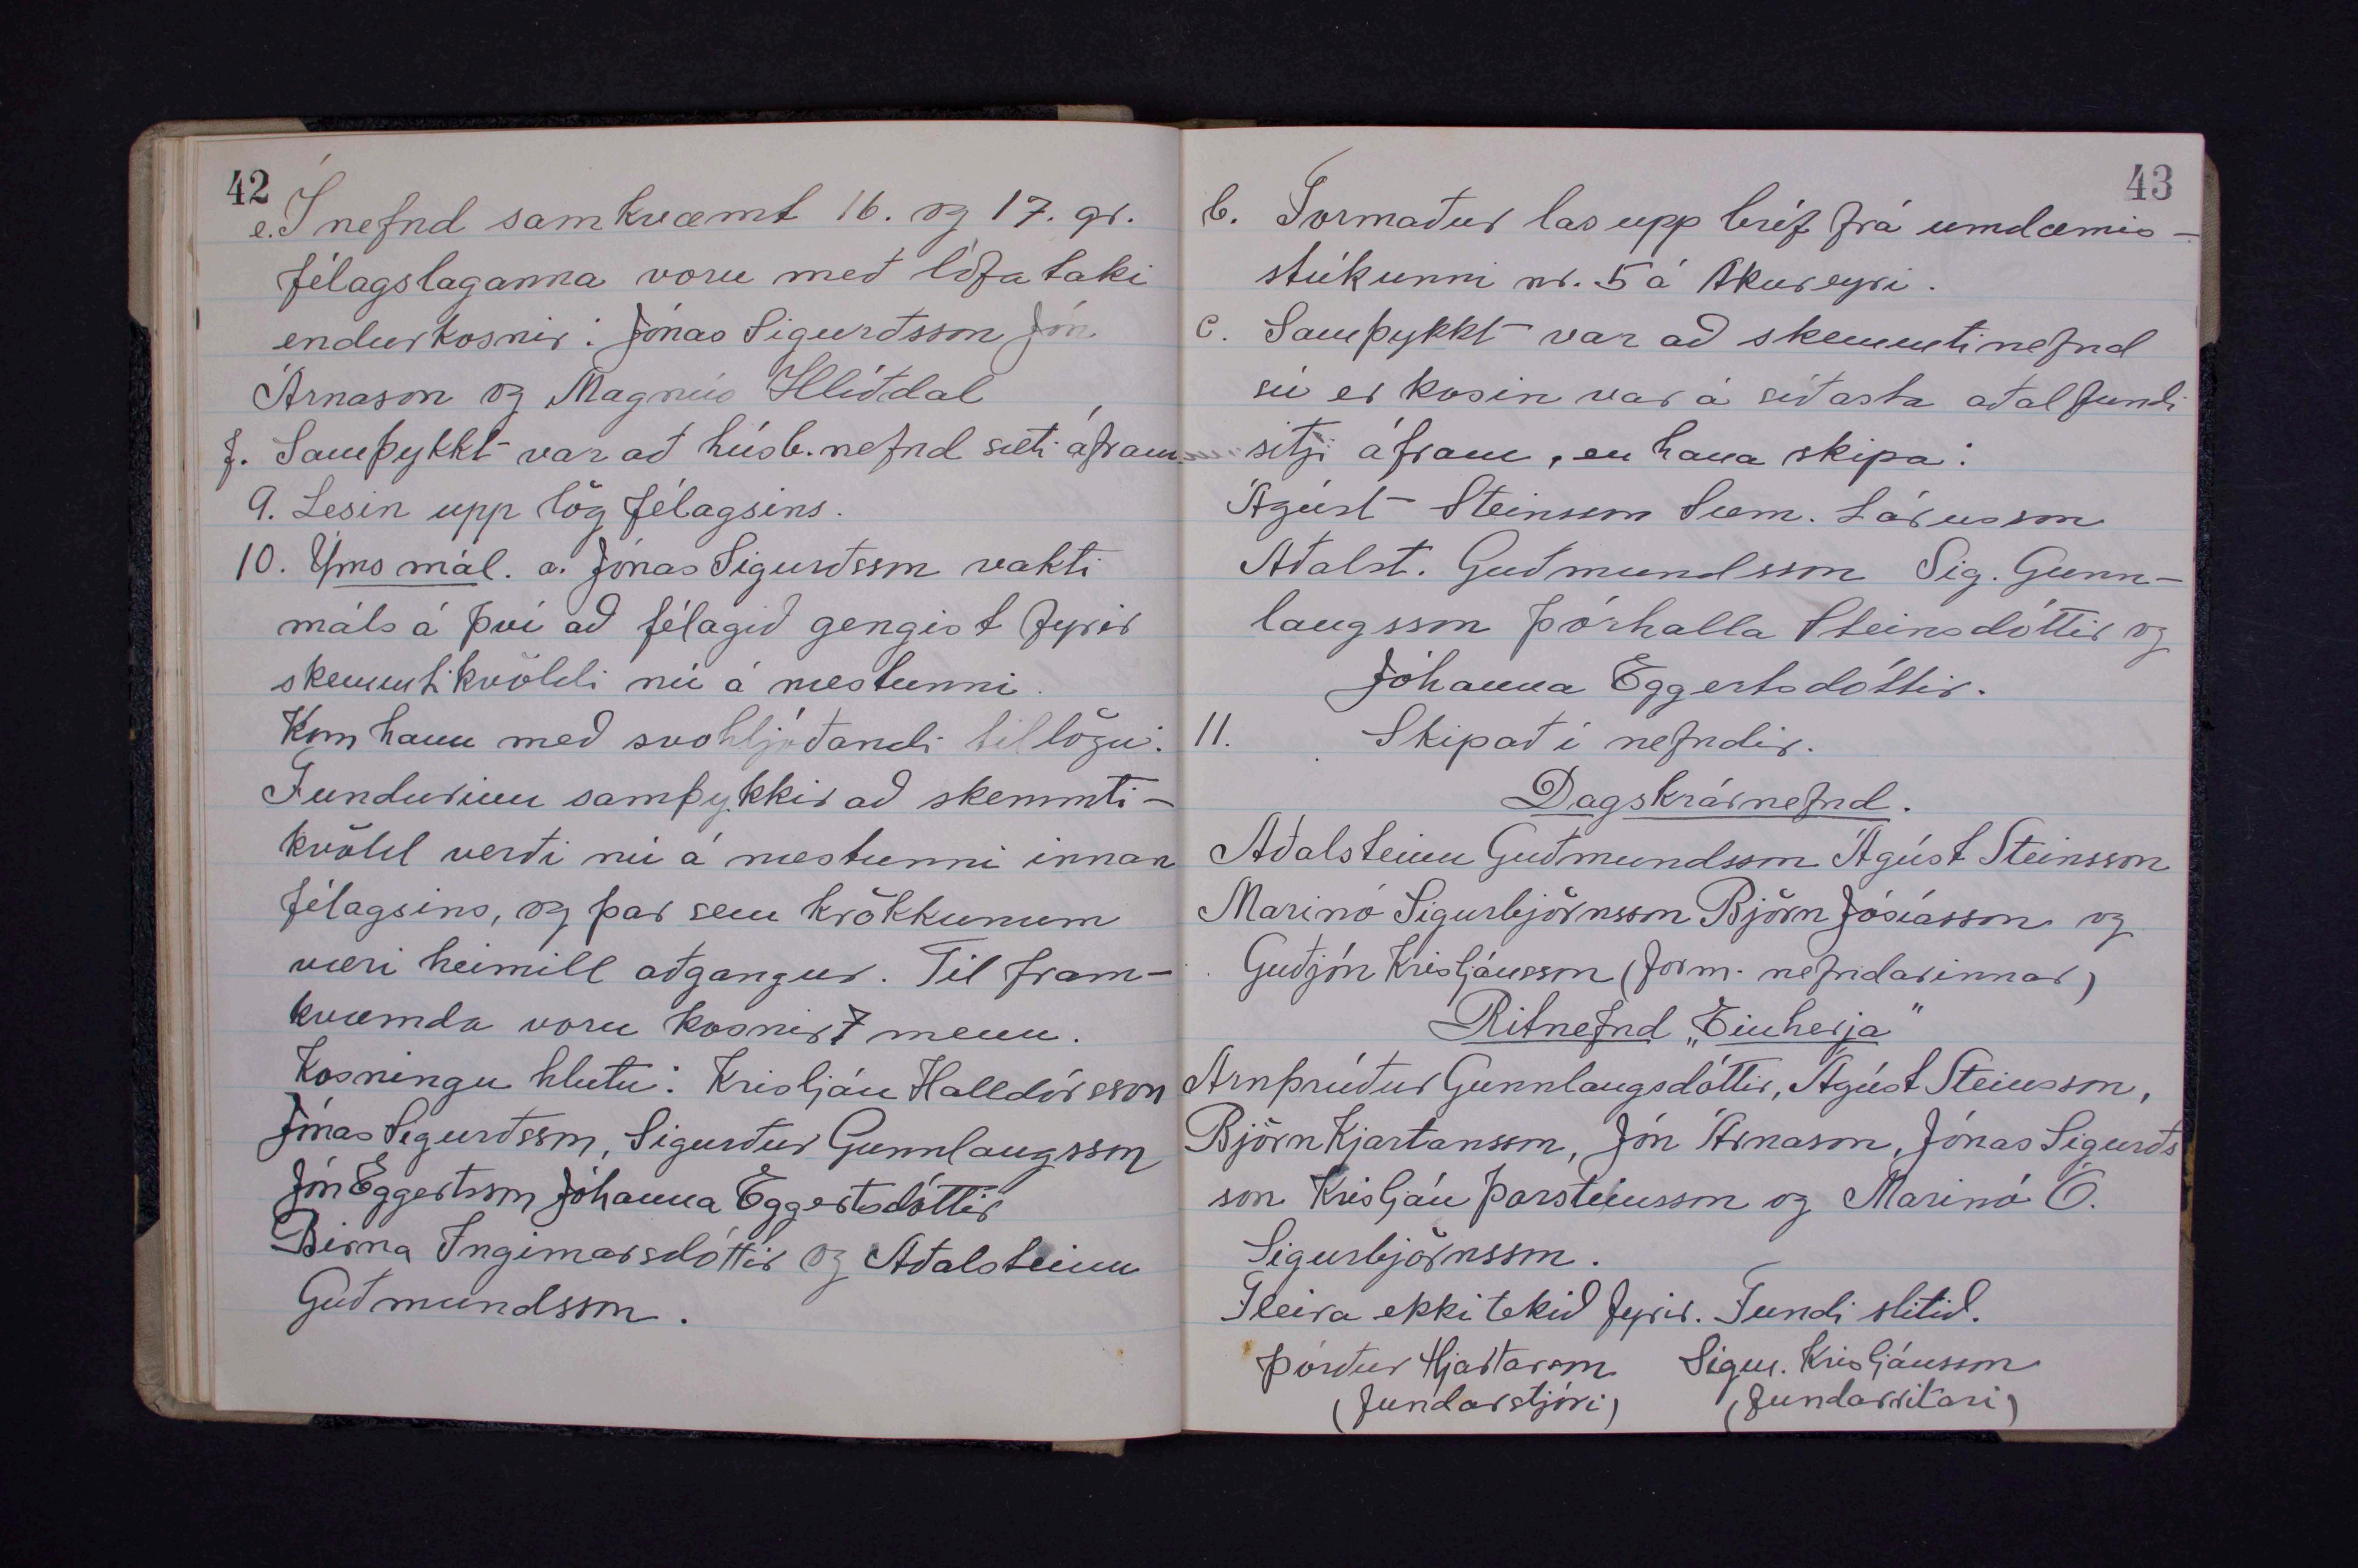 42
e. Í nefnd samkvæmt 16. og 17. gr.
félagslaganna voru með lófataki
endurkosnir: Jónas Sigurðsson Jón
Árnason og Magnús Hlíðdal
f. Samþykkt var að húsb. nefnd sæti áfram.
9. Lesin upp lög félagsins.
10. Ýms mál. a. Jónas Sigurðsson vakti
máls á því að félagið gengist fyrir
skemmtikvöldi nú á næstunni.
Kom hann með svohljóðandi tillögu:
Fundurinn samþykkir að skemmti-
kvöld verði nú á næstunni innan
félagsins, og þar sem krökkunum
væri heimill aðgangur. Til fram-
kvæmda voru kosnir 7 menn.
Kosningu hlutu: Kristján Halldórsson
Jónas Sigurðsson, Sigurður Gunnlaugsson
Jón Eggertsson Jóhanna Eggertsdóttir
Birna Ingimarsdóttir og Aðalsteinn
Guðmundsson.
43
b. Formaður las upp bréf frá umdæmis-
stúkunni nr. 5 á Akureyri.
c. Samþykkt var að skemmtinefnd
sú er kosin var á síðasta aðalfundi
sitji áfram, en hana skipa:
Ágúst Steinsson Sæm. Lárusson
Aðalst. Guðmundsson Sig. Gunn-
laugsson Þórhalla Steinsdóttir og
Jóhanna Eggertsdóttir.
11. Skipað í nefndir.
Dagskrárnefnd.
Aðalsteinn Guðmundsson Ágúst Steinsson
Marinó Sigurbjörnsson Björn Jósíasson og
Guðjón Kristjánsson (form. nefndarinnar)
Ritnefnd „Einherja"
Arnþrúður Gunnlaugsdóttir, Ágúst Steinsson,
Björn Kjartansson, Jón Árnason, Jónas Sigurðs
son Kristján Þorsteinsson og Marinó Ó.
Sigurbjörnsson.
Fleira ekki tekið fyrir. Fundi slitið.
Þórður Hjartarson Sigur. Kristjánsson
(fundarstjóri) (fundarritari)